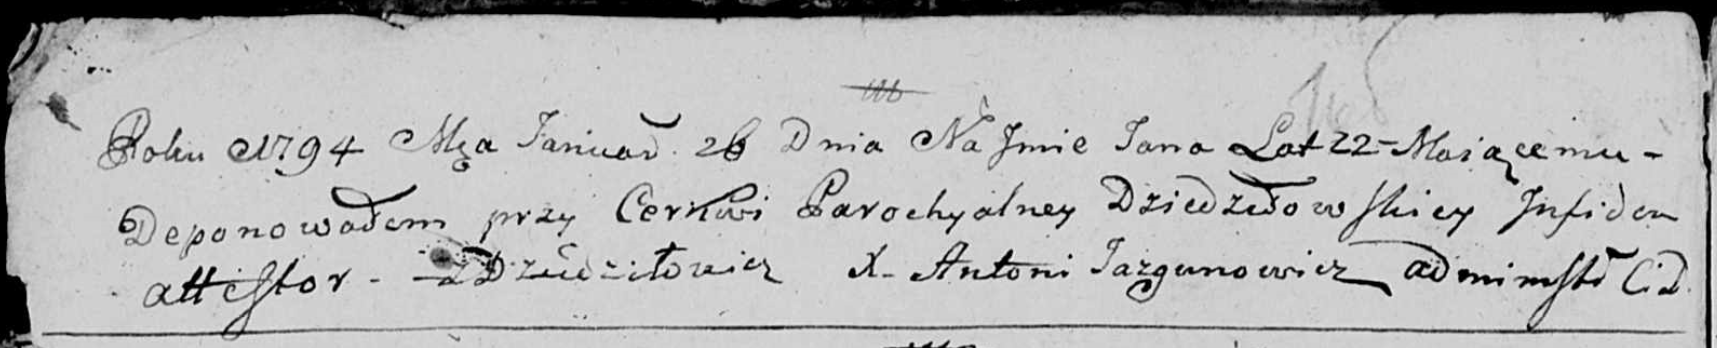 Roku 1794 Mca Januar 26 Dnia Na Jmie Jana Lat 22 Maiącemu -
Deponowałem przy Cerkwi Parochyalney Dziedziłowskiey Infidem
attestor - Z Dziedziłowicz X. Antoni Jazgunowicz